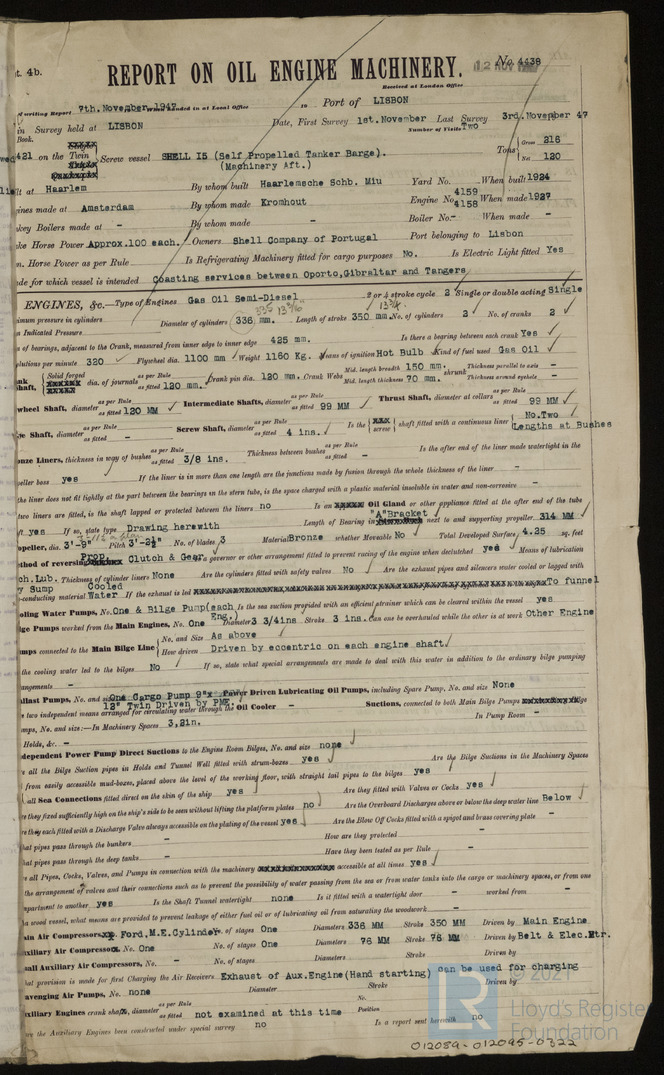 t. 4b.
No. 4438
12 NOV 1947
REPORT ON OIL ENGINE MACHINERY.
Received at London Office
of writing Report 7th.November,1947 When handed in at Local Office to Port of LISBON
in Survey held at LISBON Date, First Survey 1st.November Last Survey 3rd.November 47
Book. Number of Visits Two
421 on the Single Twin Screw vessel SHELL 15 (Self Propelled Tanker Barge). Tons Gross 216
(Machinery Aft.) No 120
ilt at Haarlem By whom built Haarlemsche Schb. Miu Yard No. When built 1924
gines made at Amsterdam By whom made Kromhout Engine No. 4159 4158 When made 1927
nkey Boilers made at - By whom made - Boiler No. - When made -
ke Horse Power Approx.100 each. Owners Shell Company of Portugal Port belonging to Lisbon
n. Horse Power as per Rule Is Refrigerating Machinery fitted for cargo purposes No. Is Electric Light fitted Yes
ade for which vessel is intended Coasting services between Oporto,Gibraltar and Tangers
ENGINES, &c.—Type of Engines Gas Oil Semi-Diesel 2 or 4 stroke cycle 2 Single or double acting Single
335 13 3/16" 13 3/4
ximum pressure in cylinders Diameter of cylinders 336 mm. Length of stroke 350 mm. No. of cylinders 2 No. of cranks 2
n Indicated Pressure
n of bearings, adjacent to the Crank, measured from inner edge to inner edge 425 mm. Is there a bearing between each crank Yes
olutions per minute 320 Flywheel dia. 1100 mm Weight 1160 Kg. Means of ignition Hot Bulb Kind of fuel used Gas Oil
nk Shaft, Solid forged dia. of journals as per Rule as fitted 120 mm. Crank pin dia. 120 mm. Crank Webs Mid. length breadth 150 mm. Mid. length thickness 70 mm. shrunk Thickness parallel to axis - Thickness around eyehole -
wheel Shaft, diameter as per Rule as fitted 120 MM Intermediate Shafts, diameter as per Rule as fitted 99 MM Thrust Shaft, diameter at collars as per Rule as fitted 99 MM
be Shaft, diameter as per Rule as fitted - Screw Shaft, diameter as per Rule as fitted 4 ins. Is the screw shaft fitted with a continuous liner No.Two Lengths at Bushes
onze Liners, thickness in way of bushes as per Rule as fitted 3/8 ins. Thickness between bushes as per Rule as fitted - Is the after end of the liner made watertight in the
peller boss yes If the liner is in more than one length are the junctions made by fusion through the whole thickness of the liner -
the liner does not fit tightly at the part between the bearings in the stern tube, is the space charged with a plastic material insoluble in water and non-corrosive -
two liners are fitted, is the shaft lapped or protected between the liners no Is an Oil Gland or other appliance fitted at the after end of the tube
"A"Bracket
ft yes If so, state type Drawing herewith Length of Bearing in next to and supporting propeller 314 MM
opeller, dia. 3'-8" Pitch 3'-2½" No. of blades 3 Material Bronze whether Moveable No Total Developed Surface 4.25 sq. feet
ethod of reversing Prop. Clutch & Gear Is a governor or other arrangement fitted to prevent racing of the engine when declutched yes Means of lubrication
ch.Lub. Thickness of cylinder liners None Are the cylinders fitted with safety valves No Are the exhaust pipes and silencers water cooled or lagged with
y Sump Cooled
-conducting material Water If the exhaust is led To funnel
oling Water Pumps, No. One & Bilge Pump(each Eng.) Is the sea suction provided with an efficient strainer which can be cleared within the vessel yes
lge Pumps worked from the Main Engines, No. One Diameter 3 3/4ins Stroke 3 ins. Can one be overhauled while the other is at work Other Engine
mps connected to the Main Bilge Line No. and Size As above
How driven Driven by eccentric on each engine shaft.
the cooling water led to the bilges No If so, state what special arrangements are made to deal with this water in addition to the ordinary bilge pumping
angements -
llast Pumps, No. and size One Cargo Pump 9"x 12" Twin Driven by PME. Power Driven Lubricating Oil Pumps, including Spare Pump, No. and size None
e two independent means arranged for circulating water through the Oil Cooler - Suctions, connected to both Main Bilge Pumps
mps, No. and size:—In Machinery Spaces 3,2in. In Pump Room -
Holds, &c. -
dependent Power Pump Direct Suctions to the Engine Room Bilges, No. and size none
e all the Bilge Suction pipes in Holds and Tunnel Well fitted with strum-boxes yes Are the Bilge Suctions in the Machinery Spaces
from easily accessible mud-boxes, placed above the level of the working floor, with straight tail pipes to the bilges yes
all Sea Connections fitted direct on the skin of the ship yes Are they fitted with Valves or Cocks yes
re they fixed sufficiently high on the ship's side to be seen without lifting the platform plates no Are the Overboard Discharges above or below the deep water line Below
re they each fitted with a Discharge Valve always accessible on the plating of the vessel yes Are the Blow Off Cocks fitted with a spigot and brass covering plate -
hat pipes pass through the bunkers - How are they protected -
hat pipes pass through the deep tanks - Have they been tested as per Rule -
e all Pipes, Cocks, Valves, and Pumps in connection with the machinery accessible at all times yes
the arrangement of valves and their connections such as to prevent the possibility of water passing from the sea or from water tanks into the cargo or machinery spaces, or from one
partment to another yes Is the Shaft Tunnel watertight none Is it fitted with a watertight door - worked from -
a wood vessel, what means are provided to prevent leakage of either fuel oil or of lubricating oil from saturating the woodwork -
ain Air Compressors, Ford,M.E.Cylinder. No. of stages One Diameters 336 MM Stroke 350 MM Driven by Main Engine
uxiliary Air Compressors, No. One No. of stages One Diameters 76 MM Stroke 76 MM Driven by Belt & Elec.Mtr.
all Auxiliary Air Compressors, No. - No. of stages Diameters Stroke Driven by
hat provision is made for first Charging the Air Receivers Exhaust of Aux.Engine(Hand starting) can be used for charging
avenging Air Pumps, No. none Diameter Stroke Driven by
xiliary Engines crank shafts, diameter as per Rule as fitted not examined at this time No. Position
ave the Auxiliary Engines been constructed under special survey no Is a report sent herewith no
© 2021
LR
Lloyd's Register
Foundation
012089-012095-0322